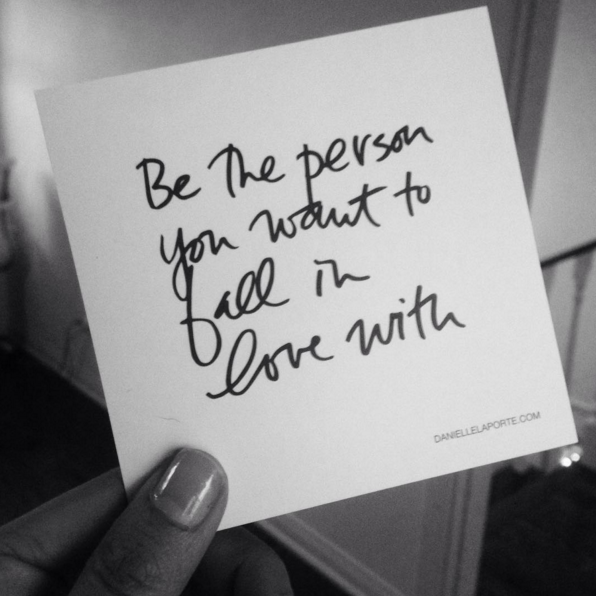 Be The person
you want to
fall in
love with
DANIELLELAPORTE.COM